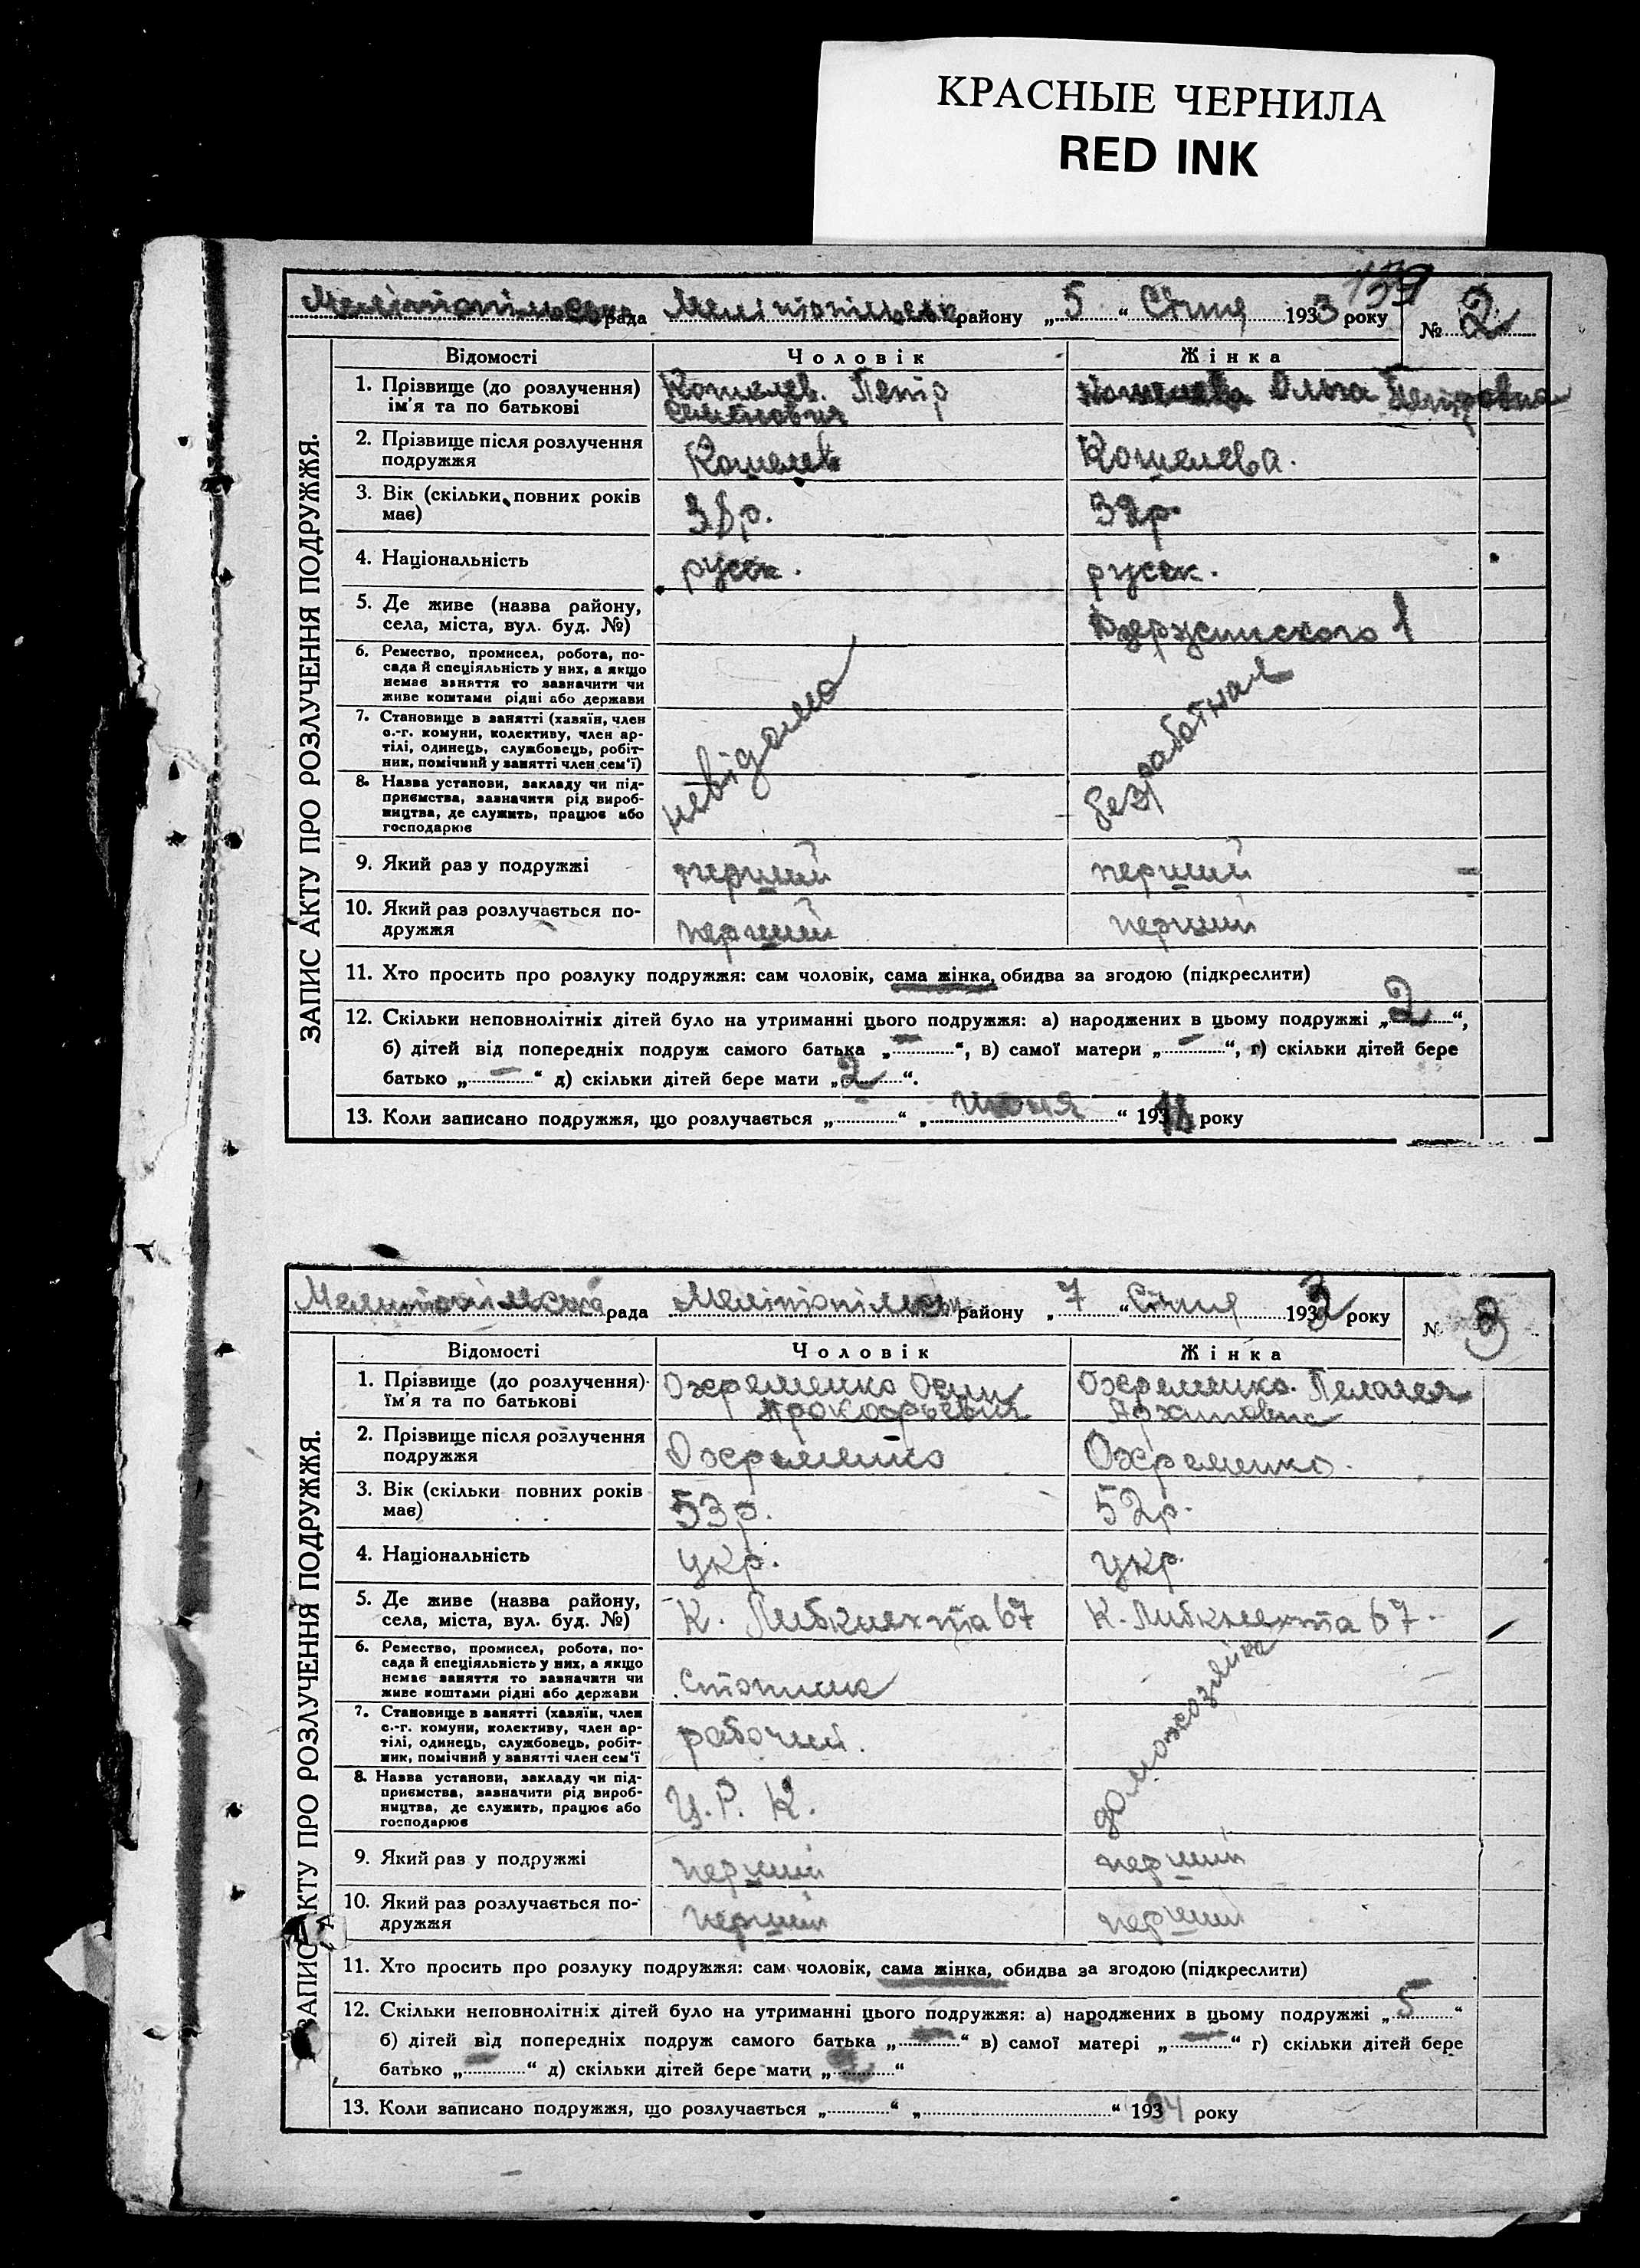 КРАСНЫЕ ЧЕРНИЛА
RED INK
139
Мелітопільська рада Мелітопільськ району „5“ Січня 1933 року № 2
ЗАПИС АКТУ ПРО РОЗЛУЧЕННЯ ПОДРУЖЖЯ.
Відомості Чоловік Жінка
1. Прізвище (до розлучення) ім'я та по батькові Кошелев. Петір Семенович Кошелева Ольга Петровна
2. Прізвище після розлучення подружжя Кошелев Кошелева.
3. Вік (скільки повних років має) 38р. 32р.
4. Національність руск. руск.
5. Де живе (назва району, села, міста, вул. буд. №) Дзержинского 1
6. Ремество, промисел, робота, посада й спеціяльність у них, а якщо немає заняття то зазначити чи живе коштами рідні або держави
7. Становище в занятті (хазяїн, член с.-г. комуни, колективу, член артілі, одинець, службовець, робітник, помічний у занятті член сем'ї)
невідомо безработная
8. Назва установи, закладу чи підприємства, зазначити рід виробництва, де служить, працює або господарює
9. Який раз у подружжі перший перший
10. Який раз розлучається подружжя перший перший
11. Хто просить про розлуку подружжя: сам чоловік, сама жінка, обидва за згодою (підкреслити)
12. Скільки неповнолітніх дітей було на утриманні цього подружжя: а) народжених в цьому подружжі „2“,
б) дітей від попередніх подруж самого батька „–“, в) самої матери „–“, г) скільки дітей бере
батько „–“ д) скільки дітей бере мати „2“.
13. Коли записано подружжя, що розлучається „ “ „июня“ 193 року
Мелитопільська рада Мелітопільськ району „7“ Січня 1933 року № 3
ЗАПИС АКТУ ПРО РОЗЛУЧЕННЯ ПОДРУЖЖЯ.
Відомості Чоловік Жінка
1. Прізвище (до розлучення) їм'я та по батькові Охременко Осип Прокофьевич Охременко. Пелагея
2. Прізвище після розлучення подружжя Охременко Охременко.
3. Вік (скільки повних років має) 53р. 52р.
4. Національність укр. укр.
5. Де живе (назва району, села, міста, вул. буд. №) К. Либкнехта 67 К. Либкнехта 67.
6. Ремество, промисел, робота, посада й спеціяльність у них, а якщо немає заняття то зазначити чи живе коштами рідні або держави
7. Становище в занятті (хазяїн, член с.-г. комуни, колективу, член артілі, одинець, службовець, робітник, помічний у занятті член сем'ї рабочий. домохозяйка
8. Назва установи, закладу чи підприємства, зазначити рід виробництва, де служить, працює або господарює Ц. Р. К.
9. Який раз у подружжі перший перший
10. Який раз розлучається подружжя перший перший
11. Хто просить про розлуку подружжя: сам чоловік, сама жінка, обидва за згодою (підкреслити)
12. Скільки неповнолітніх дітей було на утриманні цього подружжя: а) народжених в цьому подружжі „5“
б) дітей від попередніх подруж самого батька „–“ в) самої матері „–“ г) скільки дітей бере
батько „–“ д) скільки дітей бере мати „ “
13. Коли записано подружжя, що розлучається „ “ „ “ 193 року